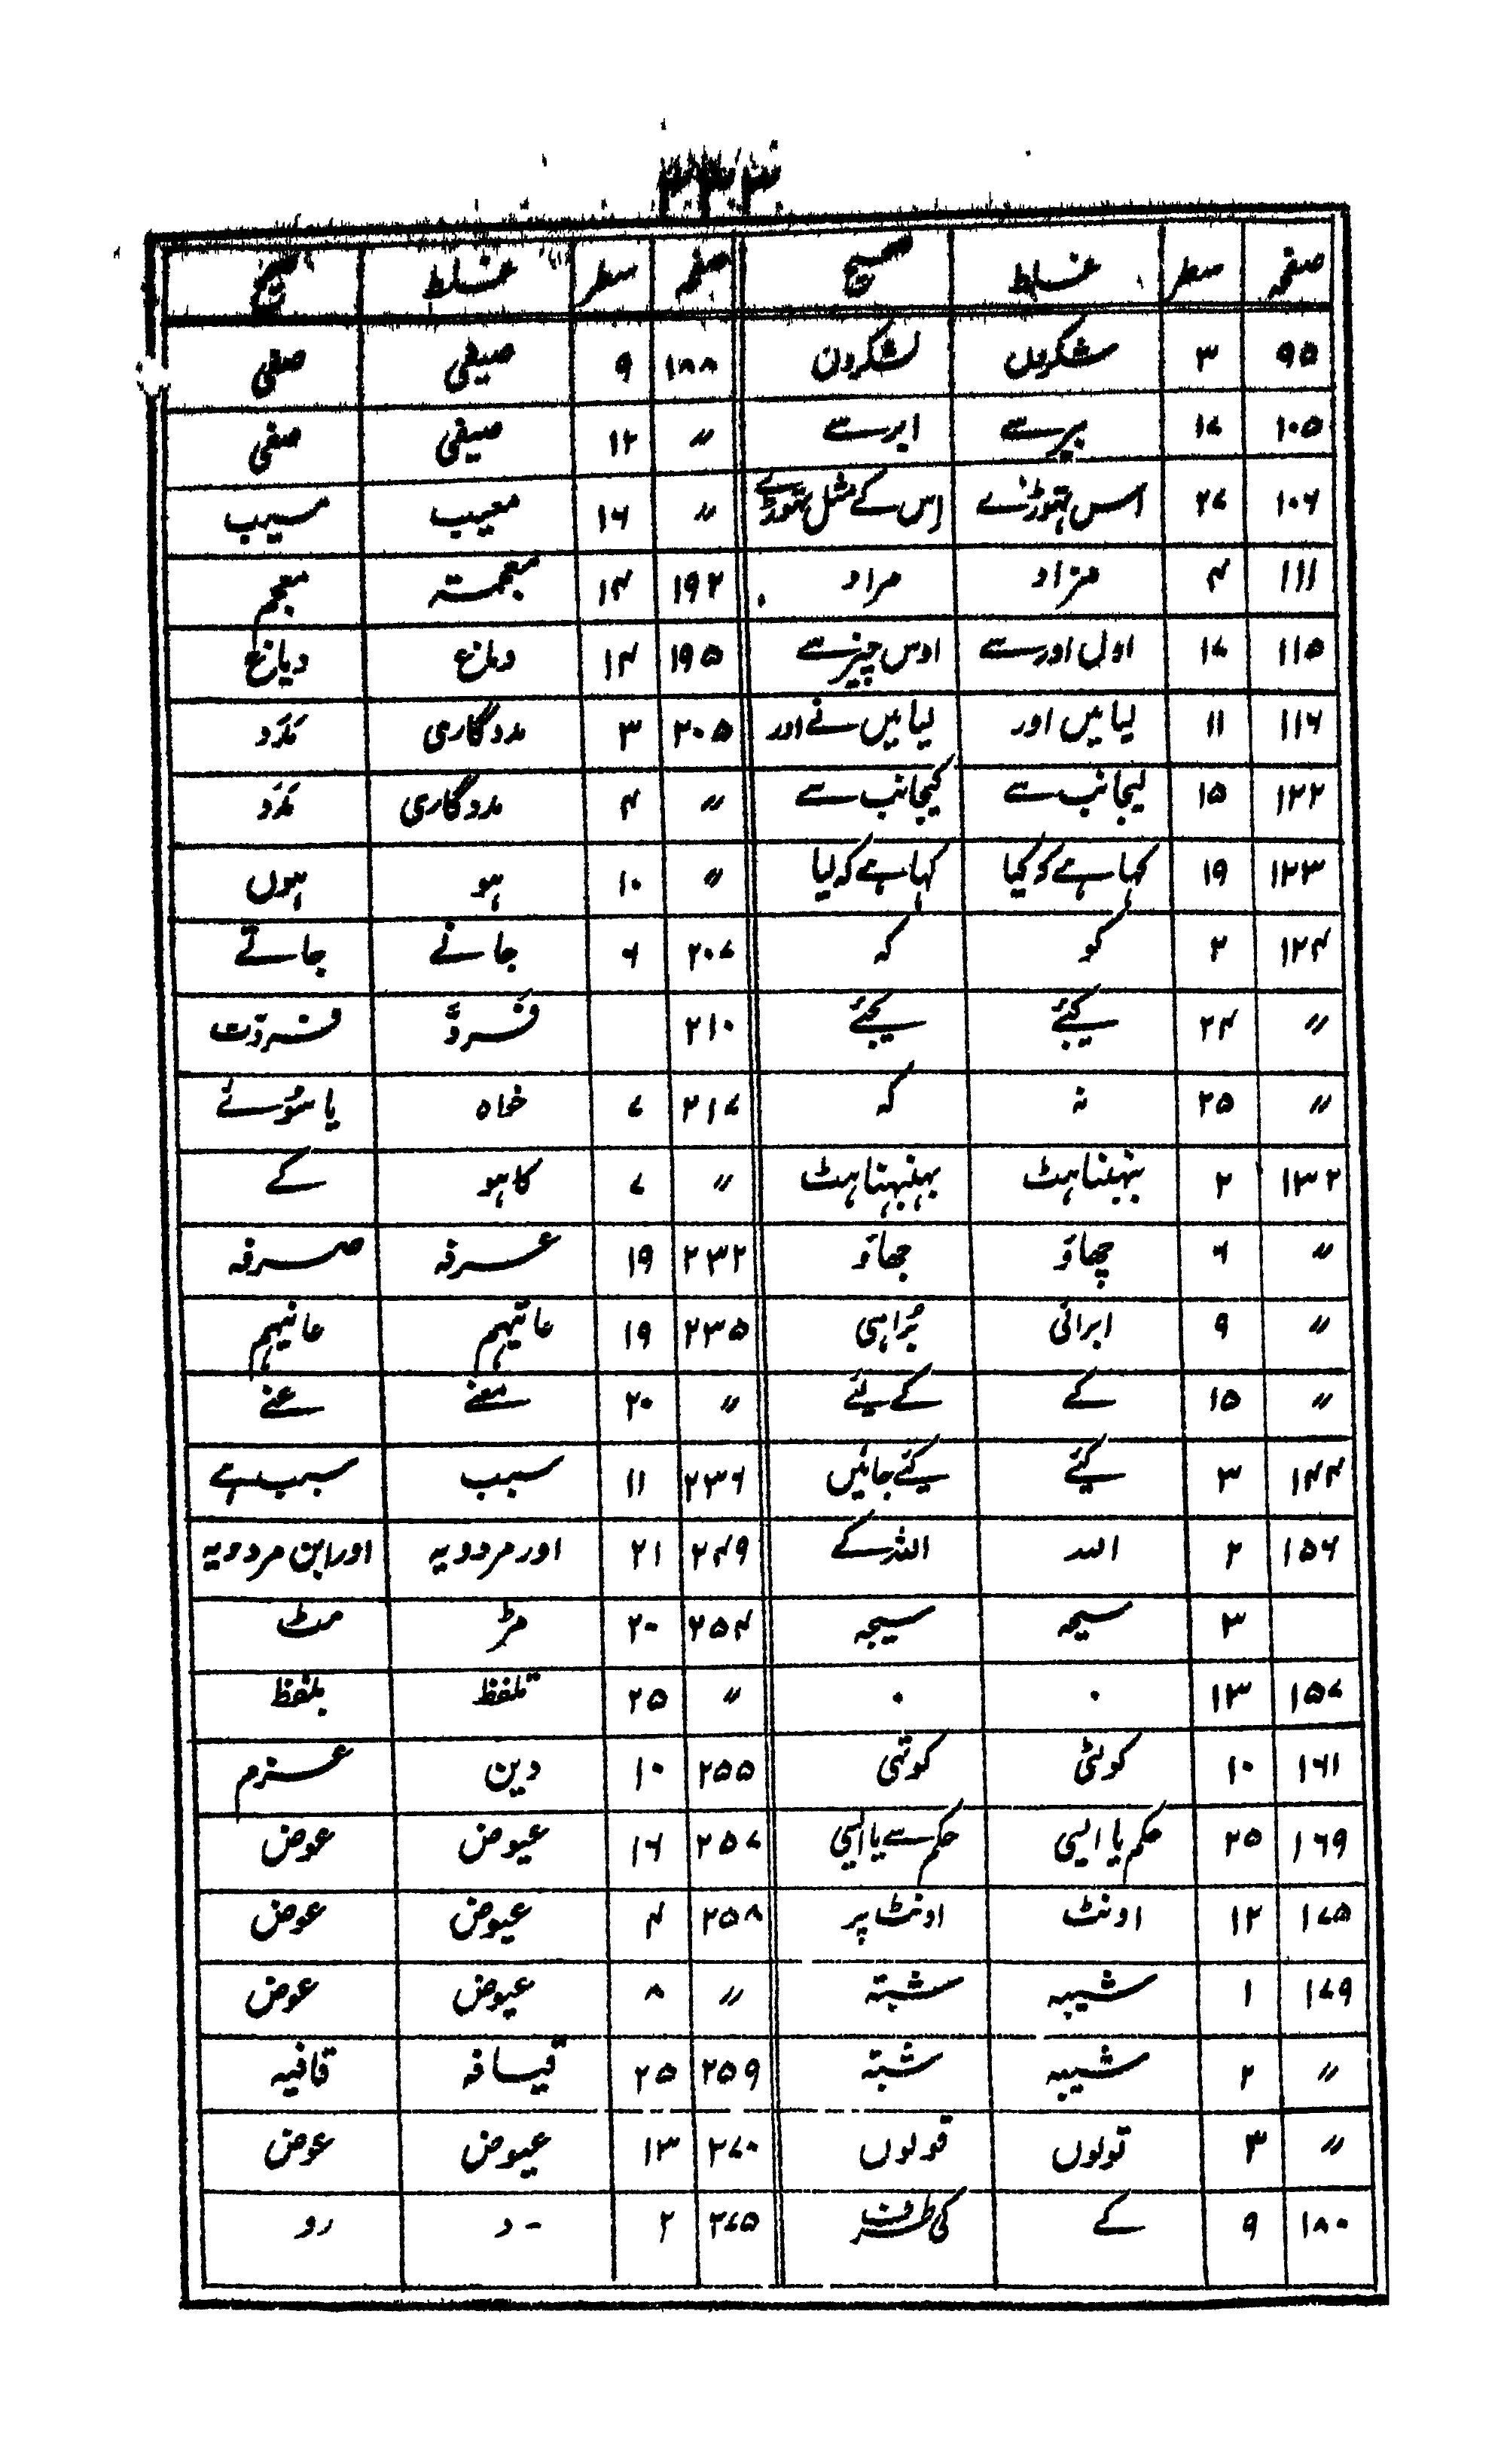 صفحہ سطر غلط صحیح صفحہ سطر غلط صحیح
۹۵ ۳ شکروں لشکروں ۱۸۸ ۹ صیفی صفی
۱۰۵ ۱۷ پر سے ابر سے " ۱۲ صیفی صفی
۱۰۶ ۲۷ اس تھوڑنے اس کے مثل تھوڑے " ۱۶ معیب مسیب
۱۱۱ ۴ مزاد مراد ۱۹۲ ۱۴ معجمتہ معجم
۱۱۵ ۱۷ اول اور سے اوس چیز سے ۱۹۵ ۱۴ دماغ دباغ
۱۱۶ ۱۱ لیا میں اور لیا میں نے اور ۲۰۵ ۳ مددگاری مَدَد
۱۲۲ ۱۵ لیجانب سے کیجانب سے " ۴ مددگاری مَدَد
۱۲۳ ۱۹ کہا ہے کہ کیا کہا ہے کہ لیا " ۱۰ ہو ہوں
۱۲۴ ۲ کو کہ ۲۰۷ ۶ جانے جاتے
" ۲۴ کیئے کیجئے ۲۱۰ فردّ فردّت
" ۲۵ نہ کہ ۲۱۷ ۷ خواہ یا سوئے
۱۳۲ ۲ بنہناہٹ بہنبہناہٹ " ۷ کاہو کے
" ۶ چھاؤ جھاؤ ۲۳۲ ۱۹ عرفہ صرفہ
" ۹ ابرائی بُراہی ۲۳۵ ۱۹ عاتیہم عانیہم
" ۱۵ کے کے لئے " ۲۰ معنے عنے
۱۴۴ ۳ کیئے کیئے جائیں ۲۳۶ ۱۱ سبب سبب ہے
۱۵۶ ۲ اللہ اللہ کے ۲۴۹ ۲۱ اور مردویہ اور ابن مردویہ
۳ سیحہ سیجہ ۲۵۴ ۲۰ مڑ مٹ
۱۵۷ ۱۳ ۰ ۰ " ۲۵ تلفظ بلفظ
۱۶۱ ۱۰ کوئی کوتہی ۲۵۵ ۱۰ دین عزم
۱۶۹ ۲۵ حکم یا ایسی حکم سے یا ایسی ۲۵۷ ۱۶ عیوض عوض
۱۷۵ ۱۲ اونٹ اونٹ پر ۲۵۸ ۴ عیوض عوض
۱۷۹ ۱ شیبہ شبتہ " ۸ عیوض عوض
" ۲ شیبہ شبتہ ۲۵۹ ۲۵ قیافہ قافیہ
" ۳ تولوں قولوں ۲۷۰ ۱۳ عیوض عوض
۱۸۰ ۹ کے کی طرف ۲۷۵ ۲ -د رو